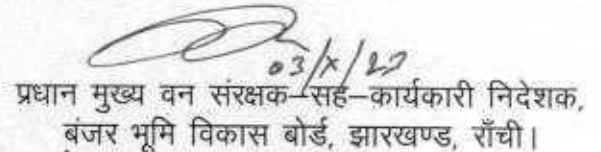 03/X/27
प्रधान मुख्य वन संरक्षक–सह–कार्यकारी निदेशक,
बंजर भूमि विकास बोर्ड, झारखण्ड, राँची।